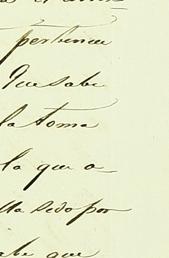 pertenece
Que sabe
la toma
la que a
lla sido por
abe que